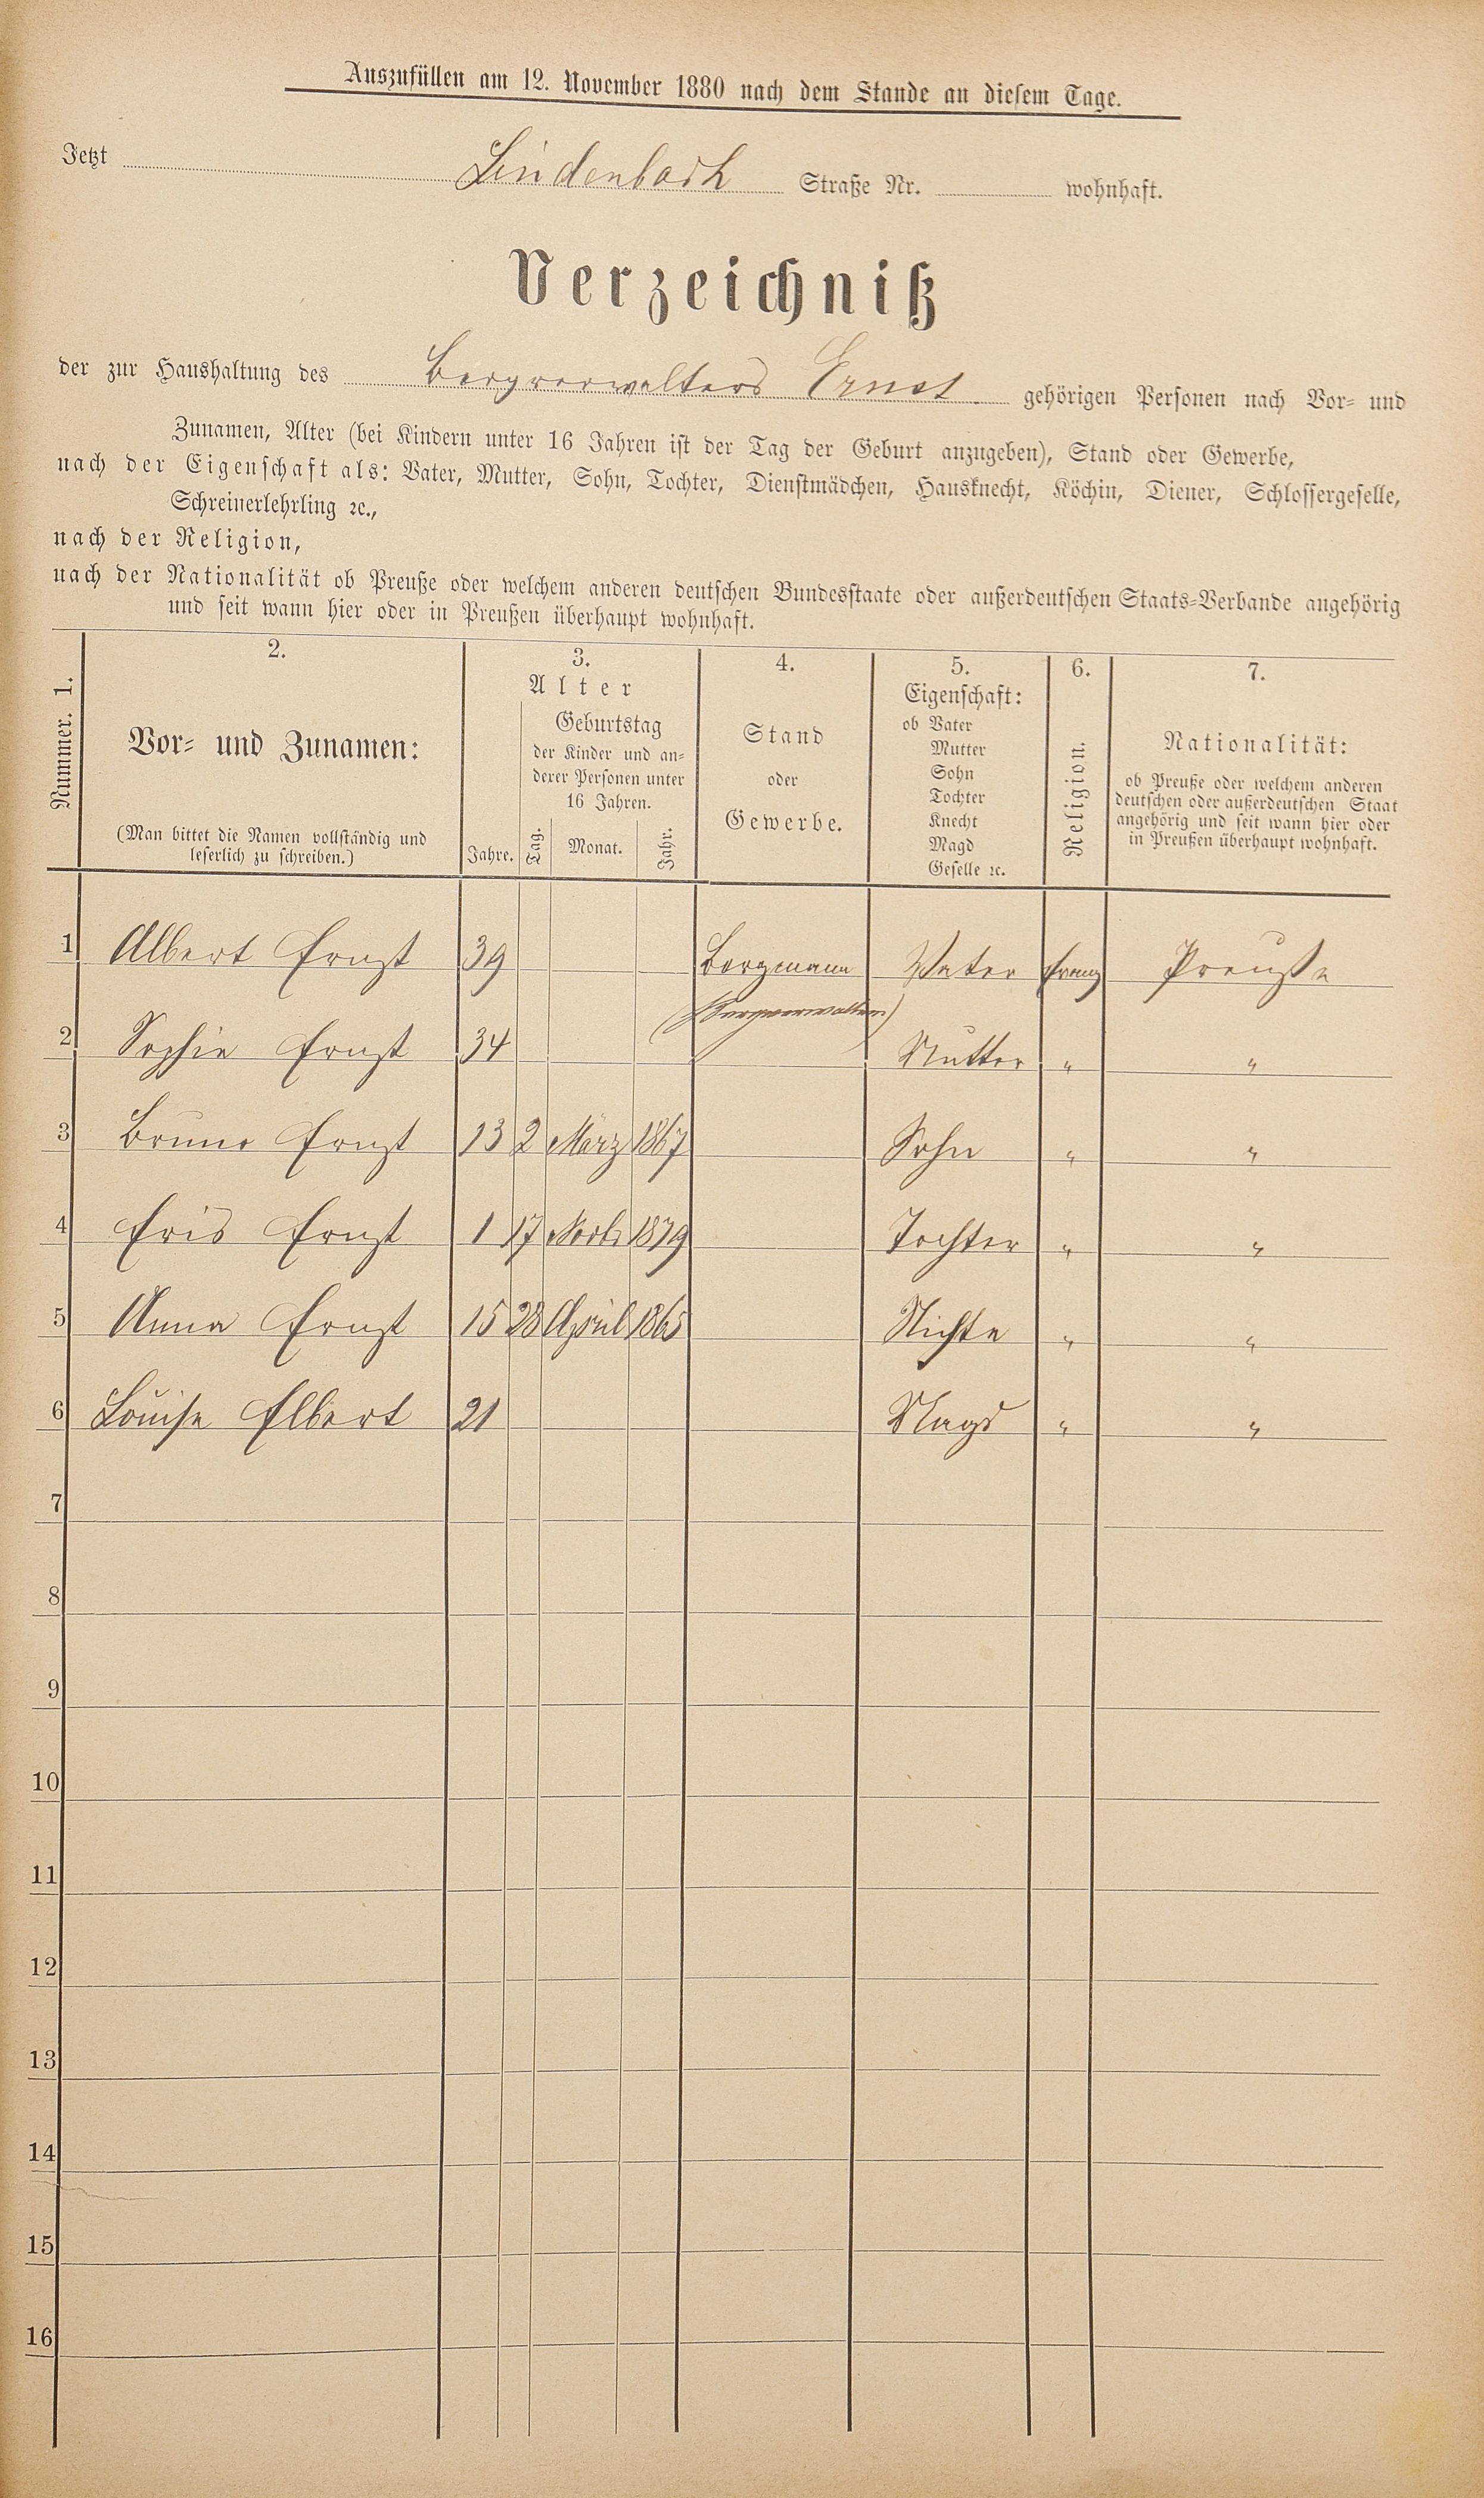 Auszufüllen am 12. November 1880 nach dem Stande an diesem Tage.
Jetzt Lindenbach Straße Nr. wohnhaft.
Verzeichniß
der zur Haushaltung des Bergverwalters Ernst gehörigen Personen nach Vor- und
Zunamen, Alter (bei Kindern unter 16 Jahren ist der Tag der Geburt anzugeben), Stand oder Gewerbe,
nach der Eigenschaft als: Vater, Mutter, Sohn, Tochter, Dienstmädchen, Hausknecht, Köchin, Diener, Schlossergeselle,
Schreinerlehrling ꝛc.,
nach der Religion,
nach der Nationalität ob Preuße oder welchem anderen deutschen Bundesstaate oder außerdeutschen Staats-Verbande angehörig
und seit wann hier oder in Preußen überhaupt wohnhaft.
Nummer. 1.
2.
Vor- und Zunamen:
(Man bittet die Namen vollständig und
leserlich zu schreiben.)
3.
Alter
Jahre.
Geburtstag
der Kinder und an-
derer Personen unter
16 Jahren.
Tag. Monat. Jahr.
4.
Stand
oder
Gewerbe.
5.
Eigenschaft:
ob Vater
Mutter
Sohn
Tochter
Knecht
Magd
Geselle ꝛc.
6.
Religion.
7.
Nationalität:
ob Preuße oder welchem anderen
deutschen oder außerdeutschen Staat
angehörig und seit wann hier oder
in Preußen überhaupt wohnhaft.
1 Albert Ernst 39 Bergmann Vater Evang Preuße
(Bergverwalter)
2 Sophie Ernst 34 Mutter " "
3 Bruno Ernst 13 2 März 1867 Sohn " "
4 Eris Ernst 1 17 Novbr 1879 Tochter " "
5 Anna Ernst 15 28 April 1865 Nichte " "
6 Louise Elbert 21 Magd " "
7
8
9
10
11
12
13
14
15
16